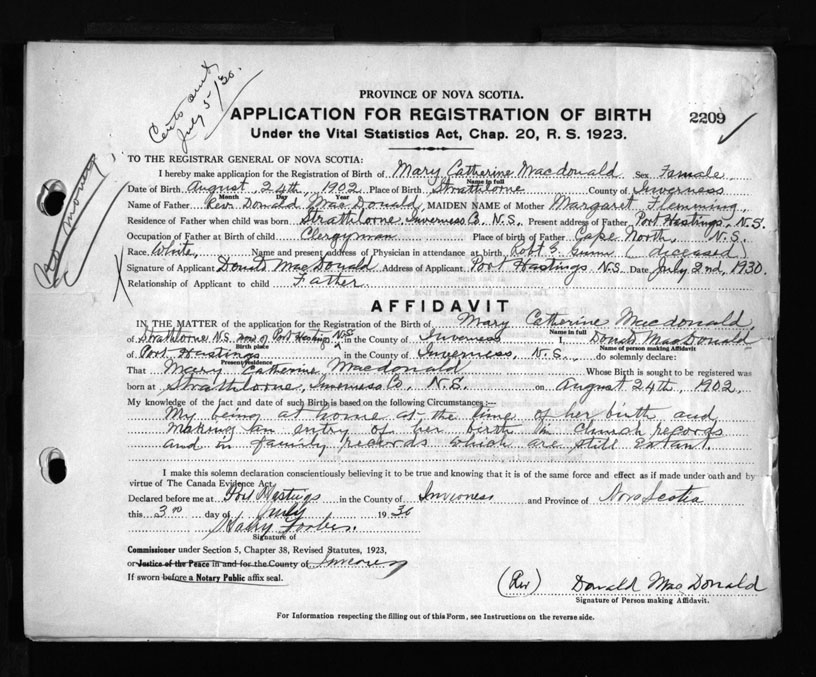 July 5/30.
PROVINCE OF NOVA SCOTIA.
APPLICATION FOR REGISTRATION OF BIRTH
2209
Under the Vital Statistics Act, Chap. 20, R. S. 1923.
TO THE REGISTRAR GENERAL OF NOVA SCOTIA:
I hereby make application for the Registration of Birth of Mary Catherine Macdonald Sex Female
Name in full
Date of Birth August 24th, 1902 Place of Birth Strathlorne County of Inverness
Month Day Year
Name of Father Rev Donald MacDonald, MAIDEN NAME of Mother Margaret Flemming.
Residence of Father when child was born Strathlorne, Inverness Co. N.S. Present address of Father Port Hastings, N.S.
Occupation of Father at Birth of child Clergyman Place of birth of Father Cape North, N.S.
Race White, Name and present address of Physician in attendance at birth Robt G. Gunn (diseased)
Signature of Applicant Donald MacDonald Address of Applicant Port Hastings N.S. Date July 2nd, 1930.
Relationship of Applicant to child Father
AFFIDAVIT
IN THE MATTER of the application for the Registration of the Birth of Mary Catherine Macdonald,
Name in full
of Strathlorne N.S. and of Port Hastings N.S. in the County of Inverness I, Donald MacDonald
Birth place
Name of person making Affidavit
of Port Hastings in the County of Inverness, N.S. do solemnly declare:
Present residence
That Mary Catherine Macdonald Whose Birth is sought to be registered was
born at Strathlorne, Inverness Co. N.S. on August 24th, 1902.
My knowledge of the fact and date of such Birth is based on the following Circumstances:—
My being at home at the time of her birth and
making an entry of her birth in Church records
and in family records which are still extant.
I make this solemn declaration conscientiously believing it to be true and knowing that it is of the same force and effect as if made under oath and by
virtue of The Canada Evidence Act.
Declared before me at Port Hastings in the County of Inverness and Province of Nova Scotia
this 3rd day of July 1930
Harry Forbes.
Signature of
Commissioner under Section 5, Chapter 38, Revised Statutes, 1923,
or Justice of the Peace in and for the County of Inverness
If sworn before a Notary Public affix seal.
(Rev) Donald MacDonald
Signature of Person making Affidavit.
For Information respecting the filling out of this Form, see Instructions on the reverse side.